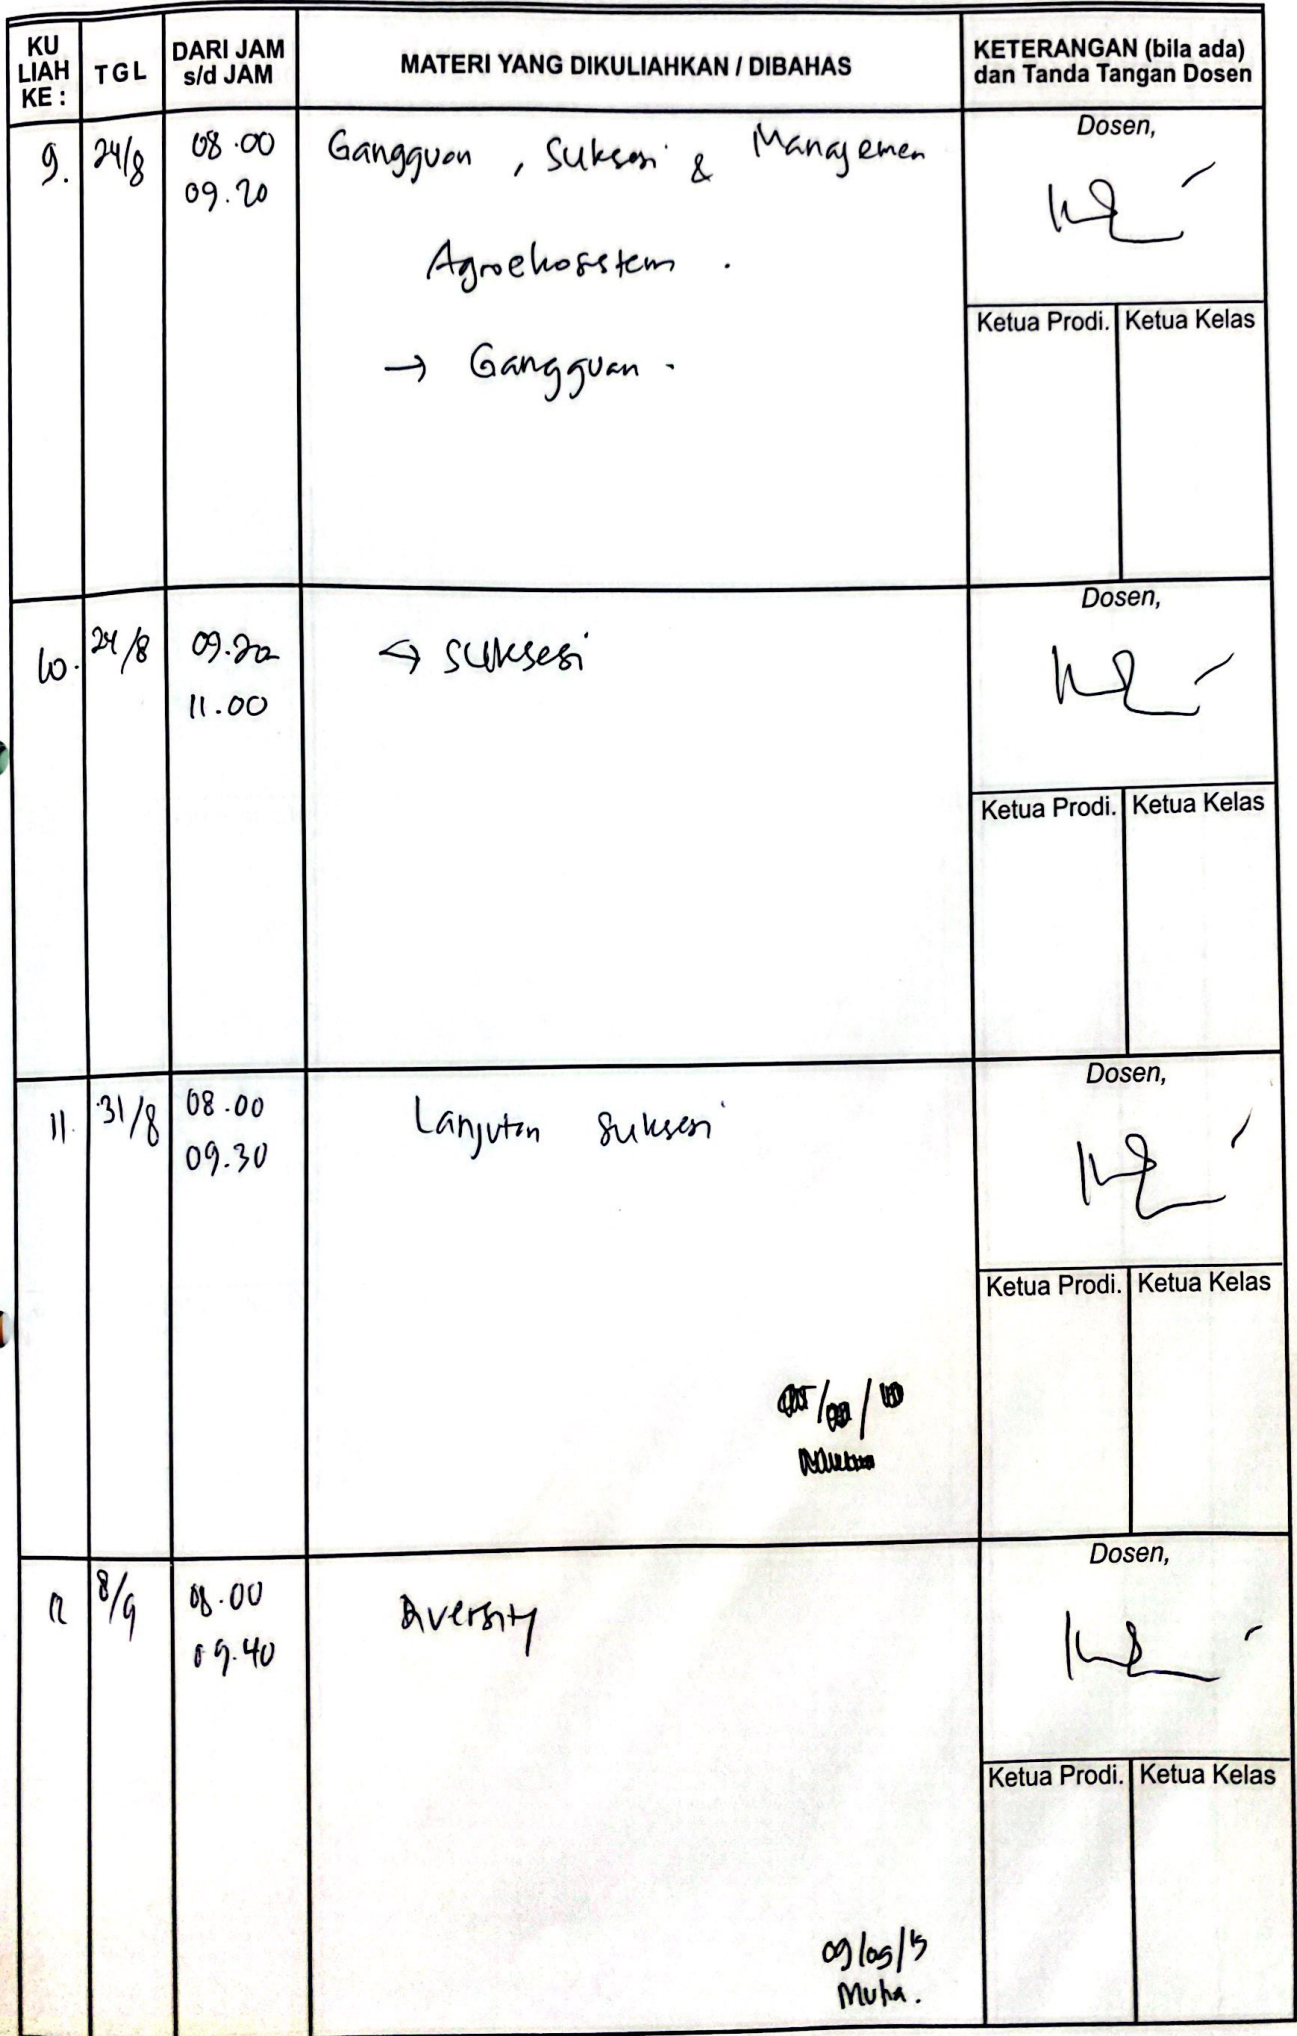 KU
LIAH
KE :
TGL
DARI JAM
s/d JAM
MATERI YANG DIKULIAHKAN / DIBAHAS
KETERANGAN (bila ada)
dan Tanda Tangan Dosen
9.
24/8
08.00
09.20
Gangguan , Suksesi & Manajemen
Agroekosistem .
→ Gangguan .
Dosen,
Ketua Prodi. Ketua Kelas
10.
24/8
09.20
11.00
↪ Suksesi
Dosen,
Ketua Prodi. Ketua Kelas
11.
31/8
08.00
09.30
Lanjutan Suksesi
Dosen,
Ketua Prodi. Ketua Kelas
12
8/9
08.00
09.40
Diversity
09/09/15
Dosen,
Ketua Prodi. Ketua Kelas